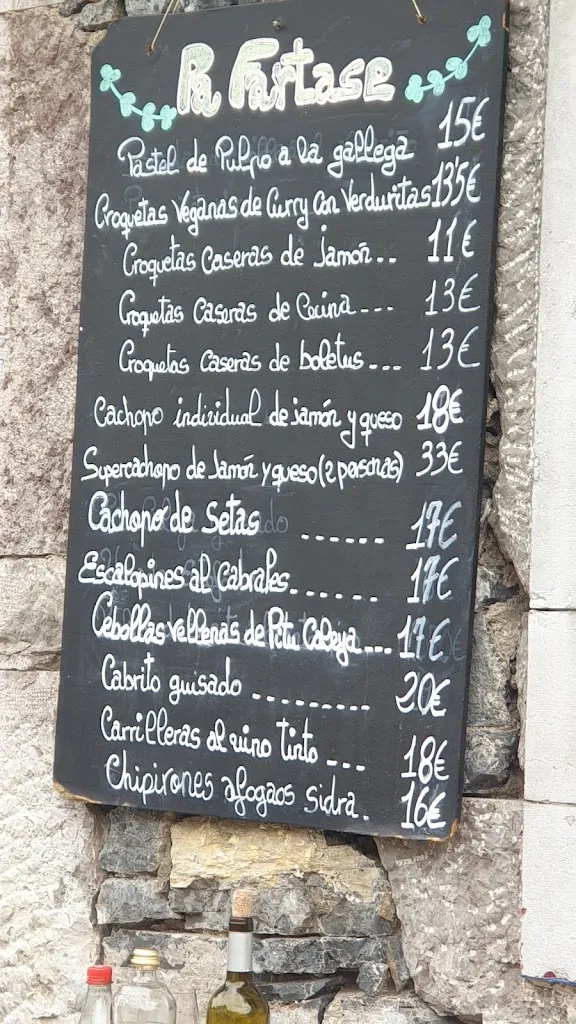 Pa Fartase
Pastel de Pulpo a la gallega 15€
Croquetas Veganas de Curry con Verduritas 13'5€
Croquetas Caseras de jamón.. 11€
Croquetas Caseras de Cecina--- 13€
Croquetas Caseras de boletus--- 13€
Cachopo individual de jamón y queso 18€
Supercachopo de Jamón y queso (2 personas) 33€
Cachopo de Setas ...... 17€
Escalopines al Cabrales...... 17€
Cebollas rellenas de Pitu Caleya... 17€
Cabrito guisado --------- 20€
Carrilleras al vino tinto --- 18€
Chipirones afogaos Sidra. 16€